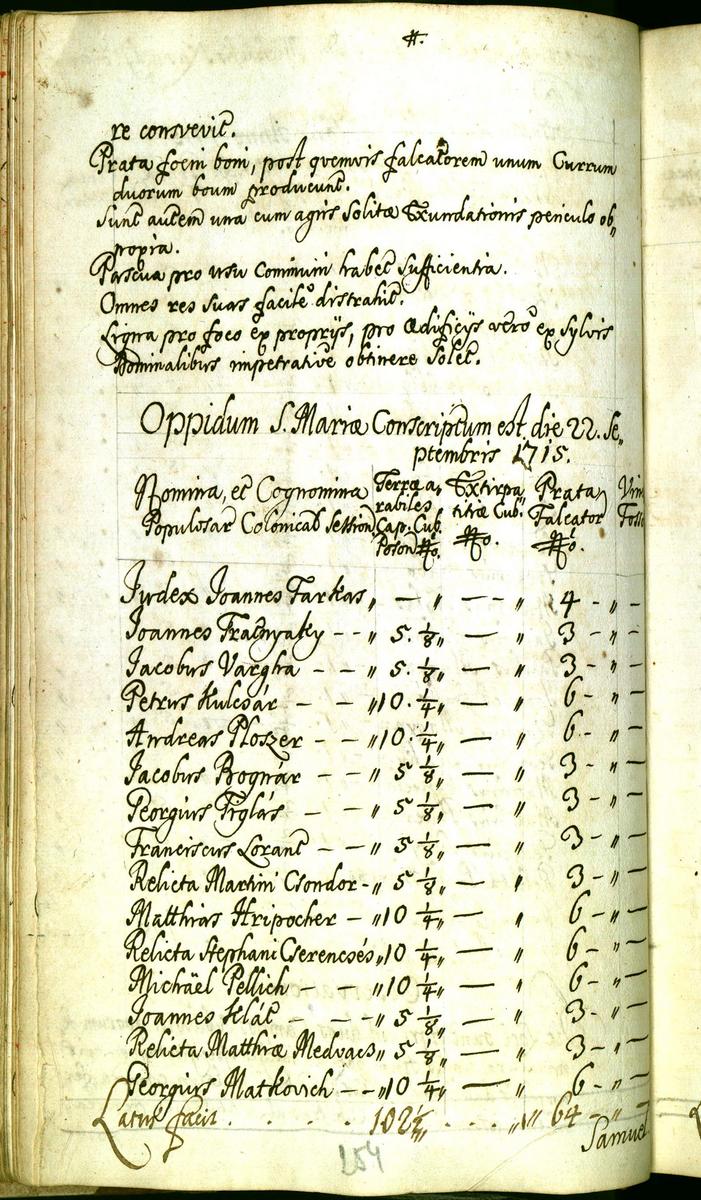 re consvevit.
Prata foeni boni, post quemvis falcatorem unum Currum
duorum boum producunt.
Sunt autem una cum agris Solitæ Exundationis periculo ob„
noxia.
Pascua pro usu Communi habet Sufficientia.
Omnes res suas facile distrahit.
Ligna pro foco ex proprijs, pro Ædificijs verò ex Sylvis
Dominalibus impetrative obtinere Solet.
Oppidum S. Mariæ Conscriptum est die 22. Se„
ptembris 1715.
Nomina, et Cognomina Terræ a„ Extirpa Prata Vin
Populosar Colonical Session rabiles titiæ Cub. Falcator Foss
Cap. Cub. No. No.
Poson No.
Judex Joannes Farkas „ — „ — „ 4 - „ -
Joannes - - „ 5. 1/8 „ — „ 3 - „ -
Jacobus Vargha - - „ 5. 1/8 „ — „ 3 - „ -
Petrus Kulcsár - - „ 10. 1/4 „ — „ 6 - „ -
Andreas Ploszer - - „ 10. 1/4 „ — „ 6 - „ -
Jacobus Bognár - - „ 5 1/8 „ — „ 3 - „ -
Georgius - - „ 5 1/8 „ — „ 3 - „ -
Franciscus Lorant - - „ 5 1/8 „ — „ 3 - „ -
Relicta Martini Csondor - „ 5 1/8 „ — „ 3 - „ -
Matthias Hripocher - „ 10 1/4 „ — „ 6 - „ -
Relicta Stephani Cserencsés „ 10 1/4 „ — „ 6 - „ -
Michäel Pellich - - „ 10 1/4 „ — „ 6 - „ -
Joannes - - - „ 5 1/8 „ — „ 3 - „ -
Relicta Matthiæ Medvacs „ 5 1/8 „ — „ 3 - „ -
Georgius Matkovich - - „ 10 1/4 „ — „ 6 - „ -
Latus facit . . . . . 102 . . . „ „ 64 - „ -
Samuel
204